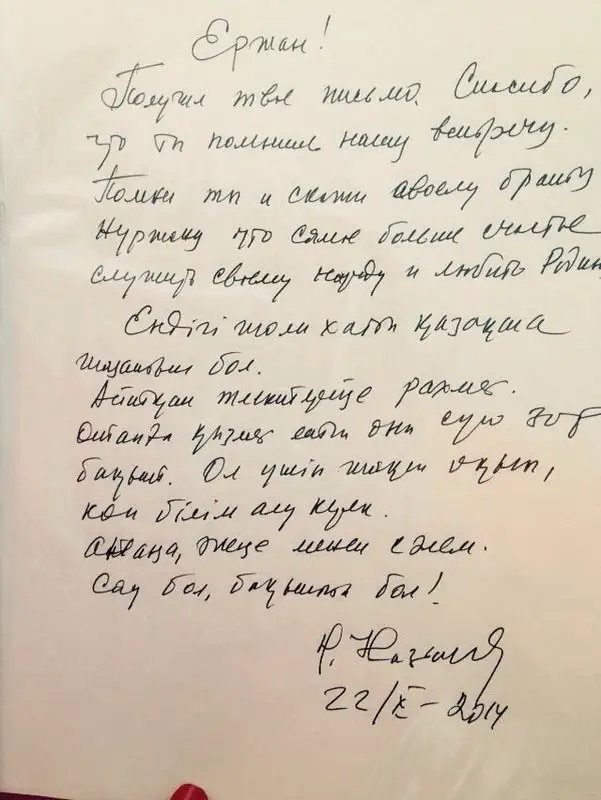 Ержан!
Получил твое письмо. Спасибо,
что ты помнишь нашу встречу.
Помни ты и скажи своему братту
Нуржану что самое больше счастье
служить своему народу и любить Родин
Ендігі жолы хатты қазақша
жазатын бол.
Айтқан тілектеріңе рахмет.
Отанға қызмет етіп оны сүю зор
бақыт. Ол үшін жақсы оқып,
көп білім алу керек.
Атаңа, әжеңе менен сәлем.
Сау бол, бақытты бол!
Н. Назарбаев
22/X – 2014